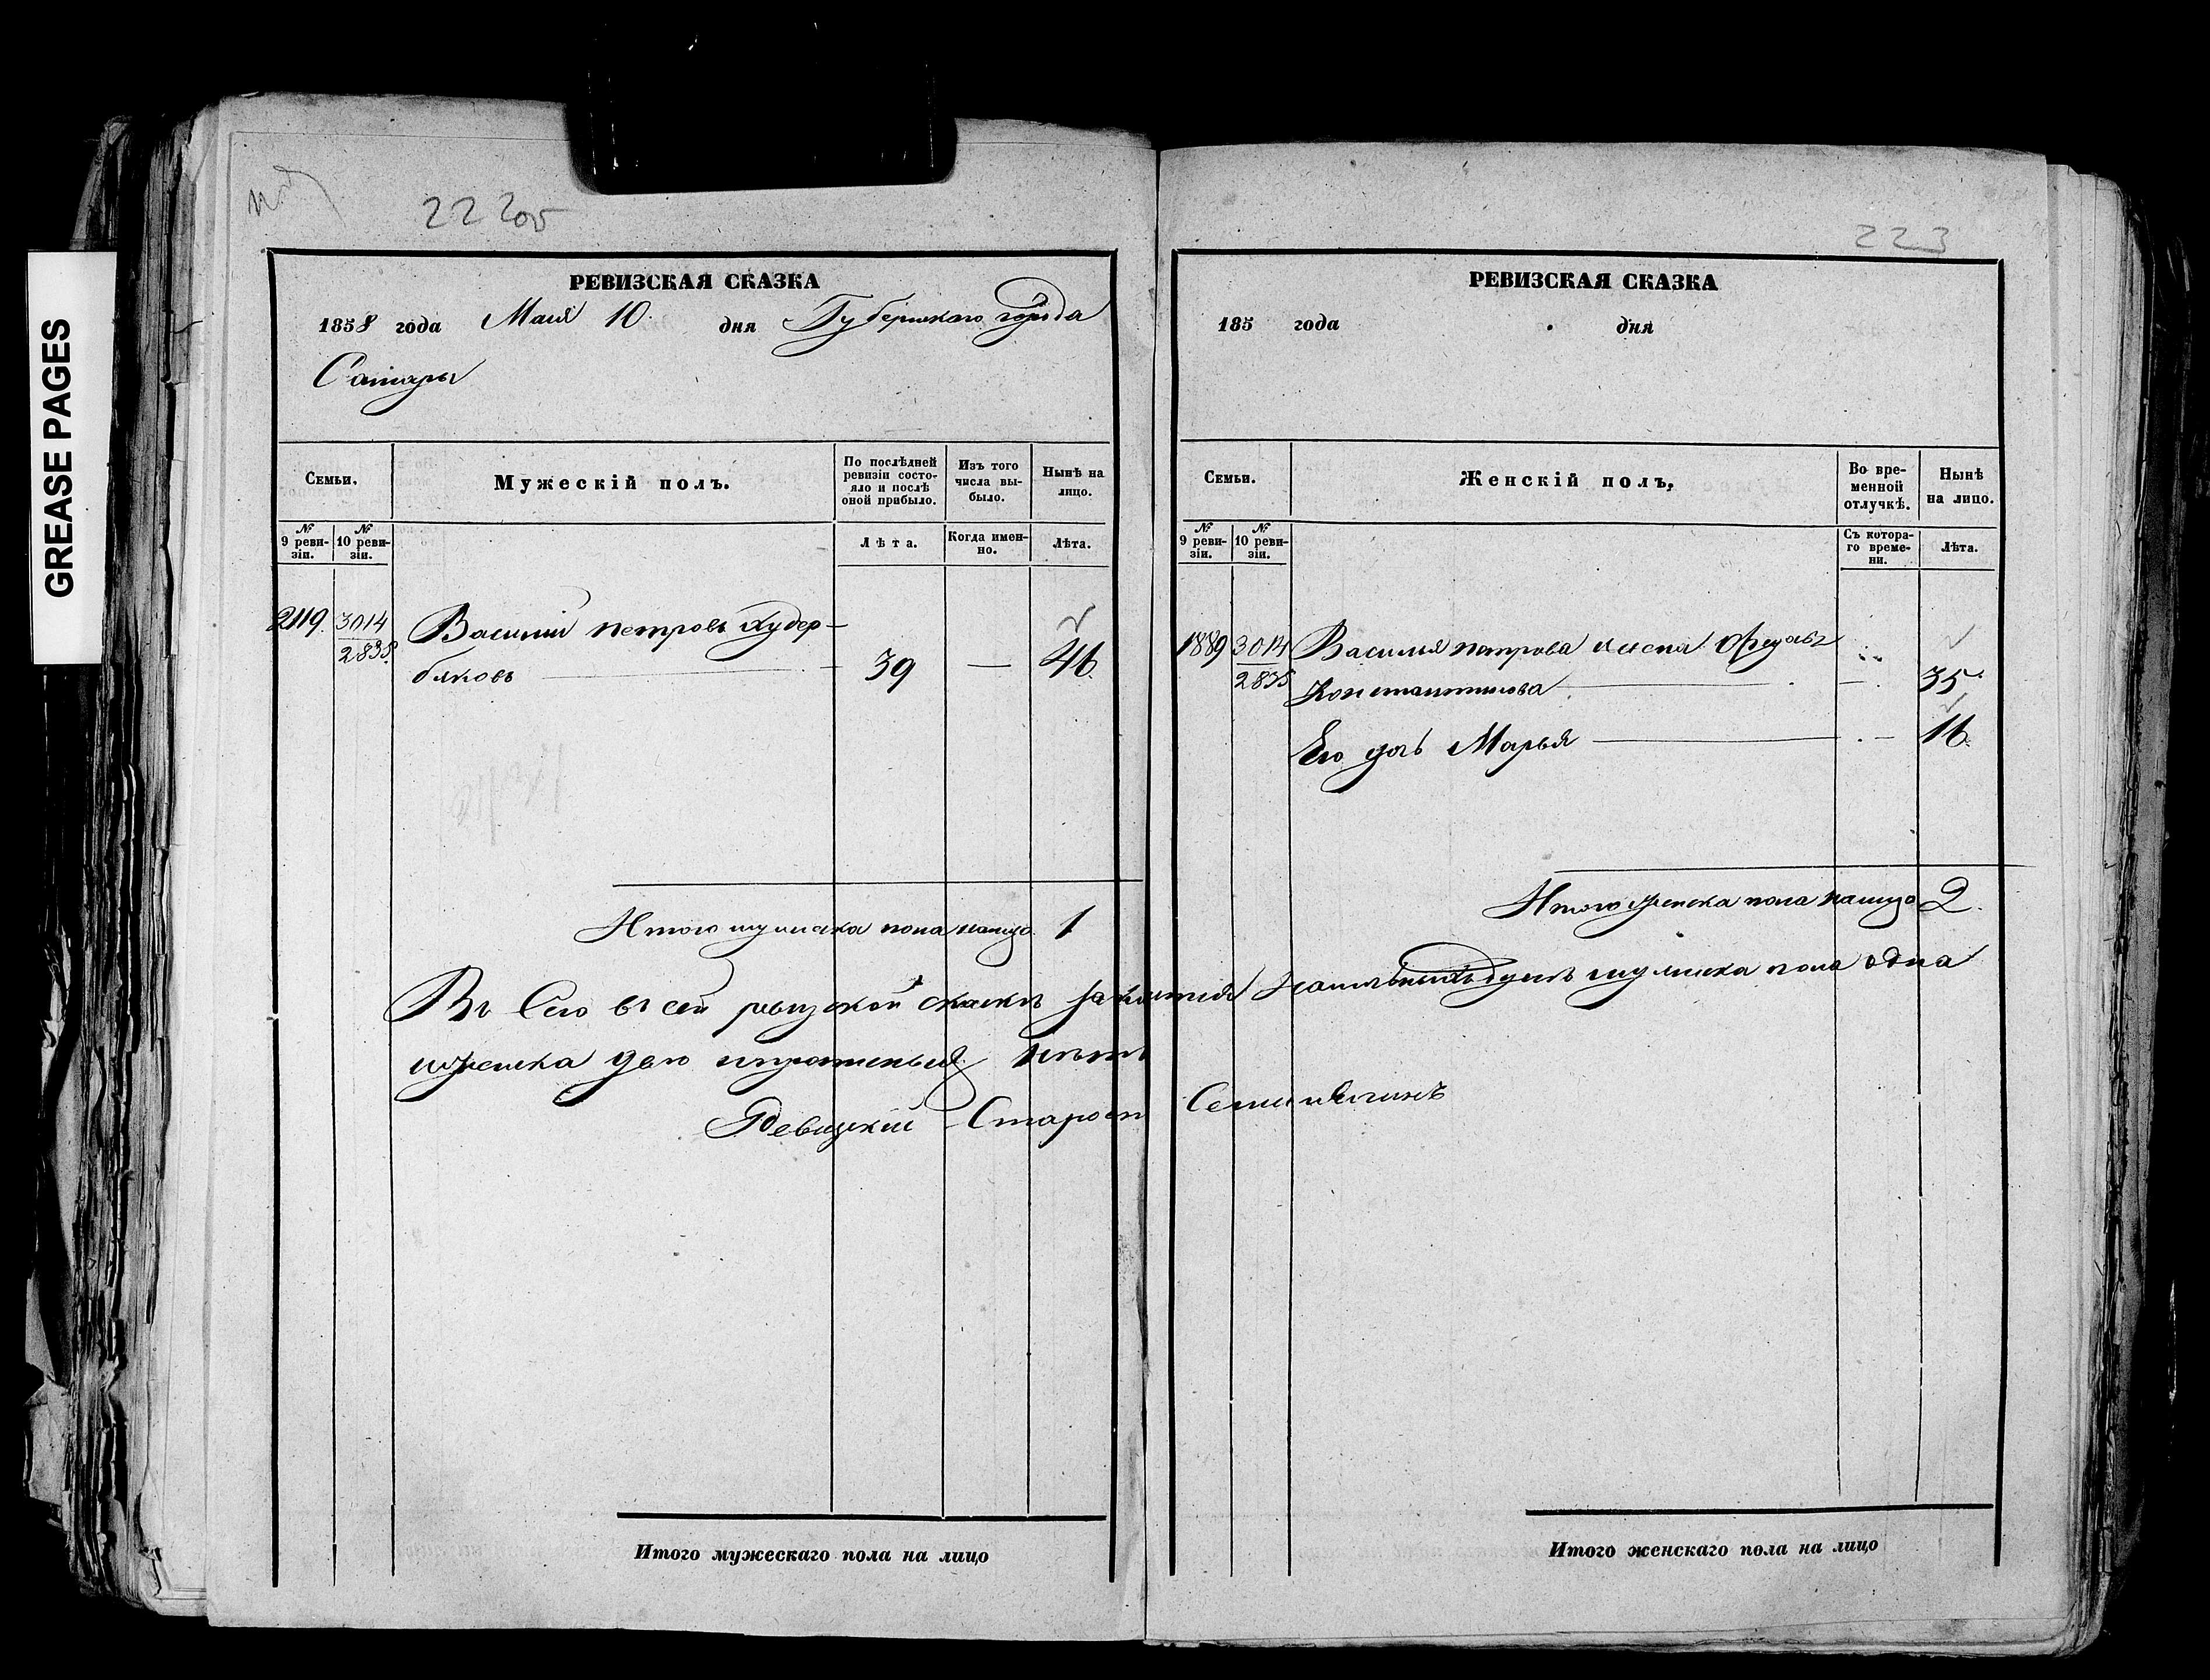 GREASE PAGES
222об
РЕВИЗСКАЯ СКАЗКА
1858 года Мая 10 дня Губернскаго города
Самары
Семьи.
Мужескій полъ.
По послѣдней ревизіи состояло и послѣ оной прибыло.
Изъ того числа выбыло.
Нынѣ на лицо.
№ 9 ревизіи.
№ 10 ревизіи.
Лѣта.
Когда именно.
Лѣта.
2119. 3014 Василий петровъ Худер-
2838. бяковъ — 39 — 46
Итого мужеска пола налицо 1
223
РЕВИЗСКАЯ СКАЗКА
185 года дня
Семьи.
Женскій полъ.
Во временной отлучкѣ.
Нынѣ на лицо.
№ 9 ревизіи.
№ 10 ревизіи.
Съ котораго времени.
Лѣта.
1889 3014 Василья петрова жена Федось
2838 Константинова — 35
Его дочь Марья — 16.
Итого женска пола налицо 2.
въ сей ревизской сказкѣ душъ мужеска пола одна
женска две нетъ
Староста
Итого мужескаго пола на лицо
Итого женскаго пола на лицо